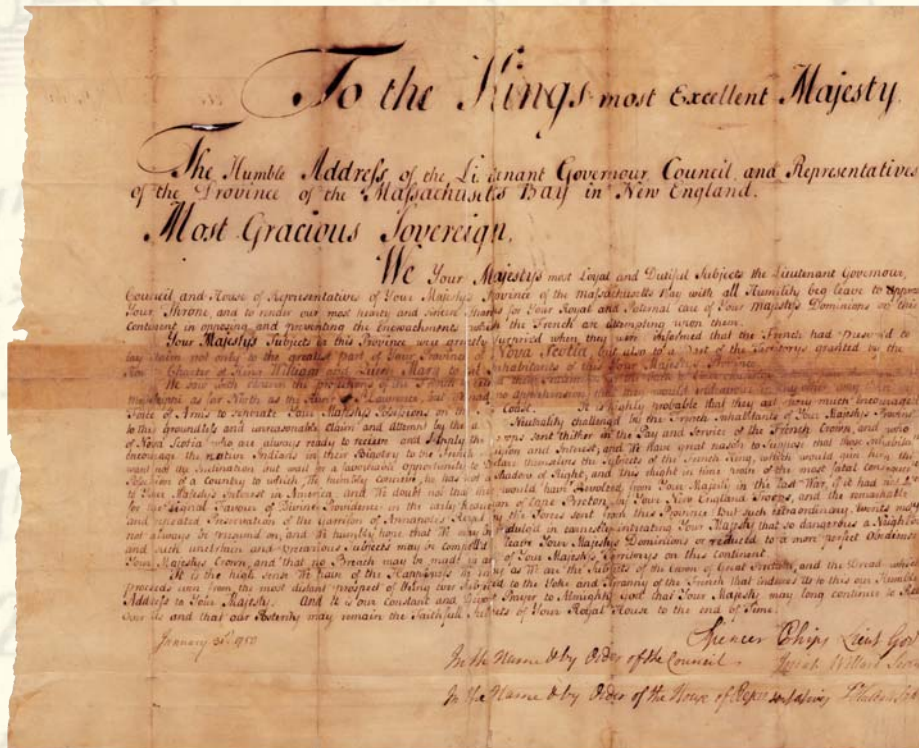 To the Kings most Excellent Majesty.
The Humble Address, of the Lieutenant Governour Council, and Representatives
of the Province of the Massachusetts Bay in New England.
Most Gracious Sovereign,
We Your Majestys most Loyal and Dutiful Subjects the Lieutenant Governour,
Council, and House of Representatives of Your Majestys Province of the Massachusetts Bay with all Humility beg leave to
Your Throne, and to render our most hearty and sincere thanks for Your Royal and Paternal care of Your Majestys Dominions on this
Continent in opposing and preventing the Encroachments which the French are attempting upon them.
Your Majestys Subjects in this Province were greatly surprized when they were informed that the French had presum'd to
lay claim not only to the greatest part of Your Province of Nova Scotia but also to a Part of the Territorys granted by the
Charter of King William and Queen Mary to the Inhabitants of this Your Majestys Province.
We saw with concern the of the French
as far North as the River St Lawrence, but they would
Force of Arms to seperate Your Majestys Possessions on the Coast. It is highly probable that they are very much encouraged
to this groundless and unreasonable claim and attempt by the Neutrality challeng'd by the French Inhabitants of Your Majestys Province
of Nova Scotia who are always ready to receive and supply the Troops sent thither in the Pay and Service of the French Crown, and who
encourage the native Indians in their Bigotry to the French Religion and Interest, and We have great reason to suppose that these Inhabitants
want not the Inclination but wait for a favourable opportunity to declare themselves the Subjects of the French King, which would give him the
Possession of a Country to which, We humbly conceive, he has not a Shadow of Right, and this might in time prove of the most fatal consequence
to Your Majestys Interest in America, and We doubt not that they would have Revolted from Your Majesty in the last War, if it had not
for the signal Favours of Divine Providence in the early Reduction of Cape Breton by Your New England Troops, and the remarkable
and repeated Preservation of the Garrison of Annapolis Royal by the Forces sent from this Province: But such extraordinary Events may
not always be presumed on, and We humbly hope that We may be indulg'd in earnestly intreating Your Majesty that so dangerous a
and such uncertain and precarious Subjects may be compell'd to leave Your Majestys Dominions or reduced to a more perfect Obedience
Your Majestys Crown, and that no Breach may be made in any of Your Majestys Territorys on this Continent.
It is the high sense We have of the Happiness We enjoy as We are the Subjects of the Crown of Great Britain, and the Dread which
proceeds even from the most distant prospect of being ever subjected to the Yoke and Tyranny of the French that induces Us to this our Humble
Address to Your Majesty. And it is our constant and Devout Prayer to Almighty God that Your Majesty may long continue to
over us and that our Posterity may remain the Faithfull Subjects of Your Royal House to the end of Time.
January
Spencer Phips Lieut Gov
In the Name & by Order of the Council Josiah Willard
In the Name & by Order of the House of Representatives